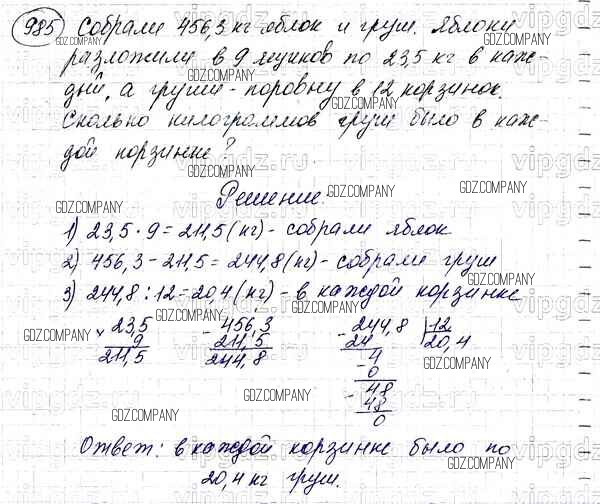 985 Собрали 456,3 кг яблок и груш. Яблоки
разложили в 9 ящиков по 23,5 кг в каж-
дый, а груши - поровну в 12 корзинок.
Сколько килограммов груш было в каж-
дой корзинке?
Решение.
1) 23,5 · 9 = 211,5 (кг) - собрали яблок
2) 456,3 - 211,5 = 244,8 (кг) - собрали груш
3) 244,8 : 12 = 20,4 (кг) - в каждой корзинке
× 23,5 - 456,3 - 244,8 | 12
9 211,5 24 20,4
211,5 244,8 4
- 0
- 48
48
0
Ответ: в каждой корзинке было по
20,4 кг груш.
GDZ.COMPANY
vipgdz.ru